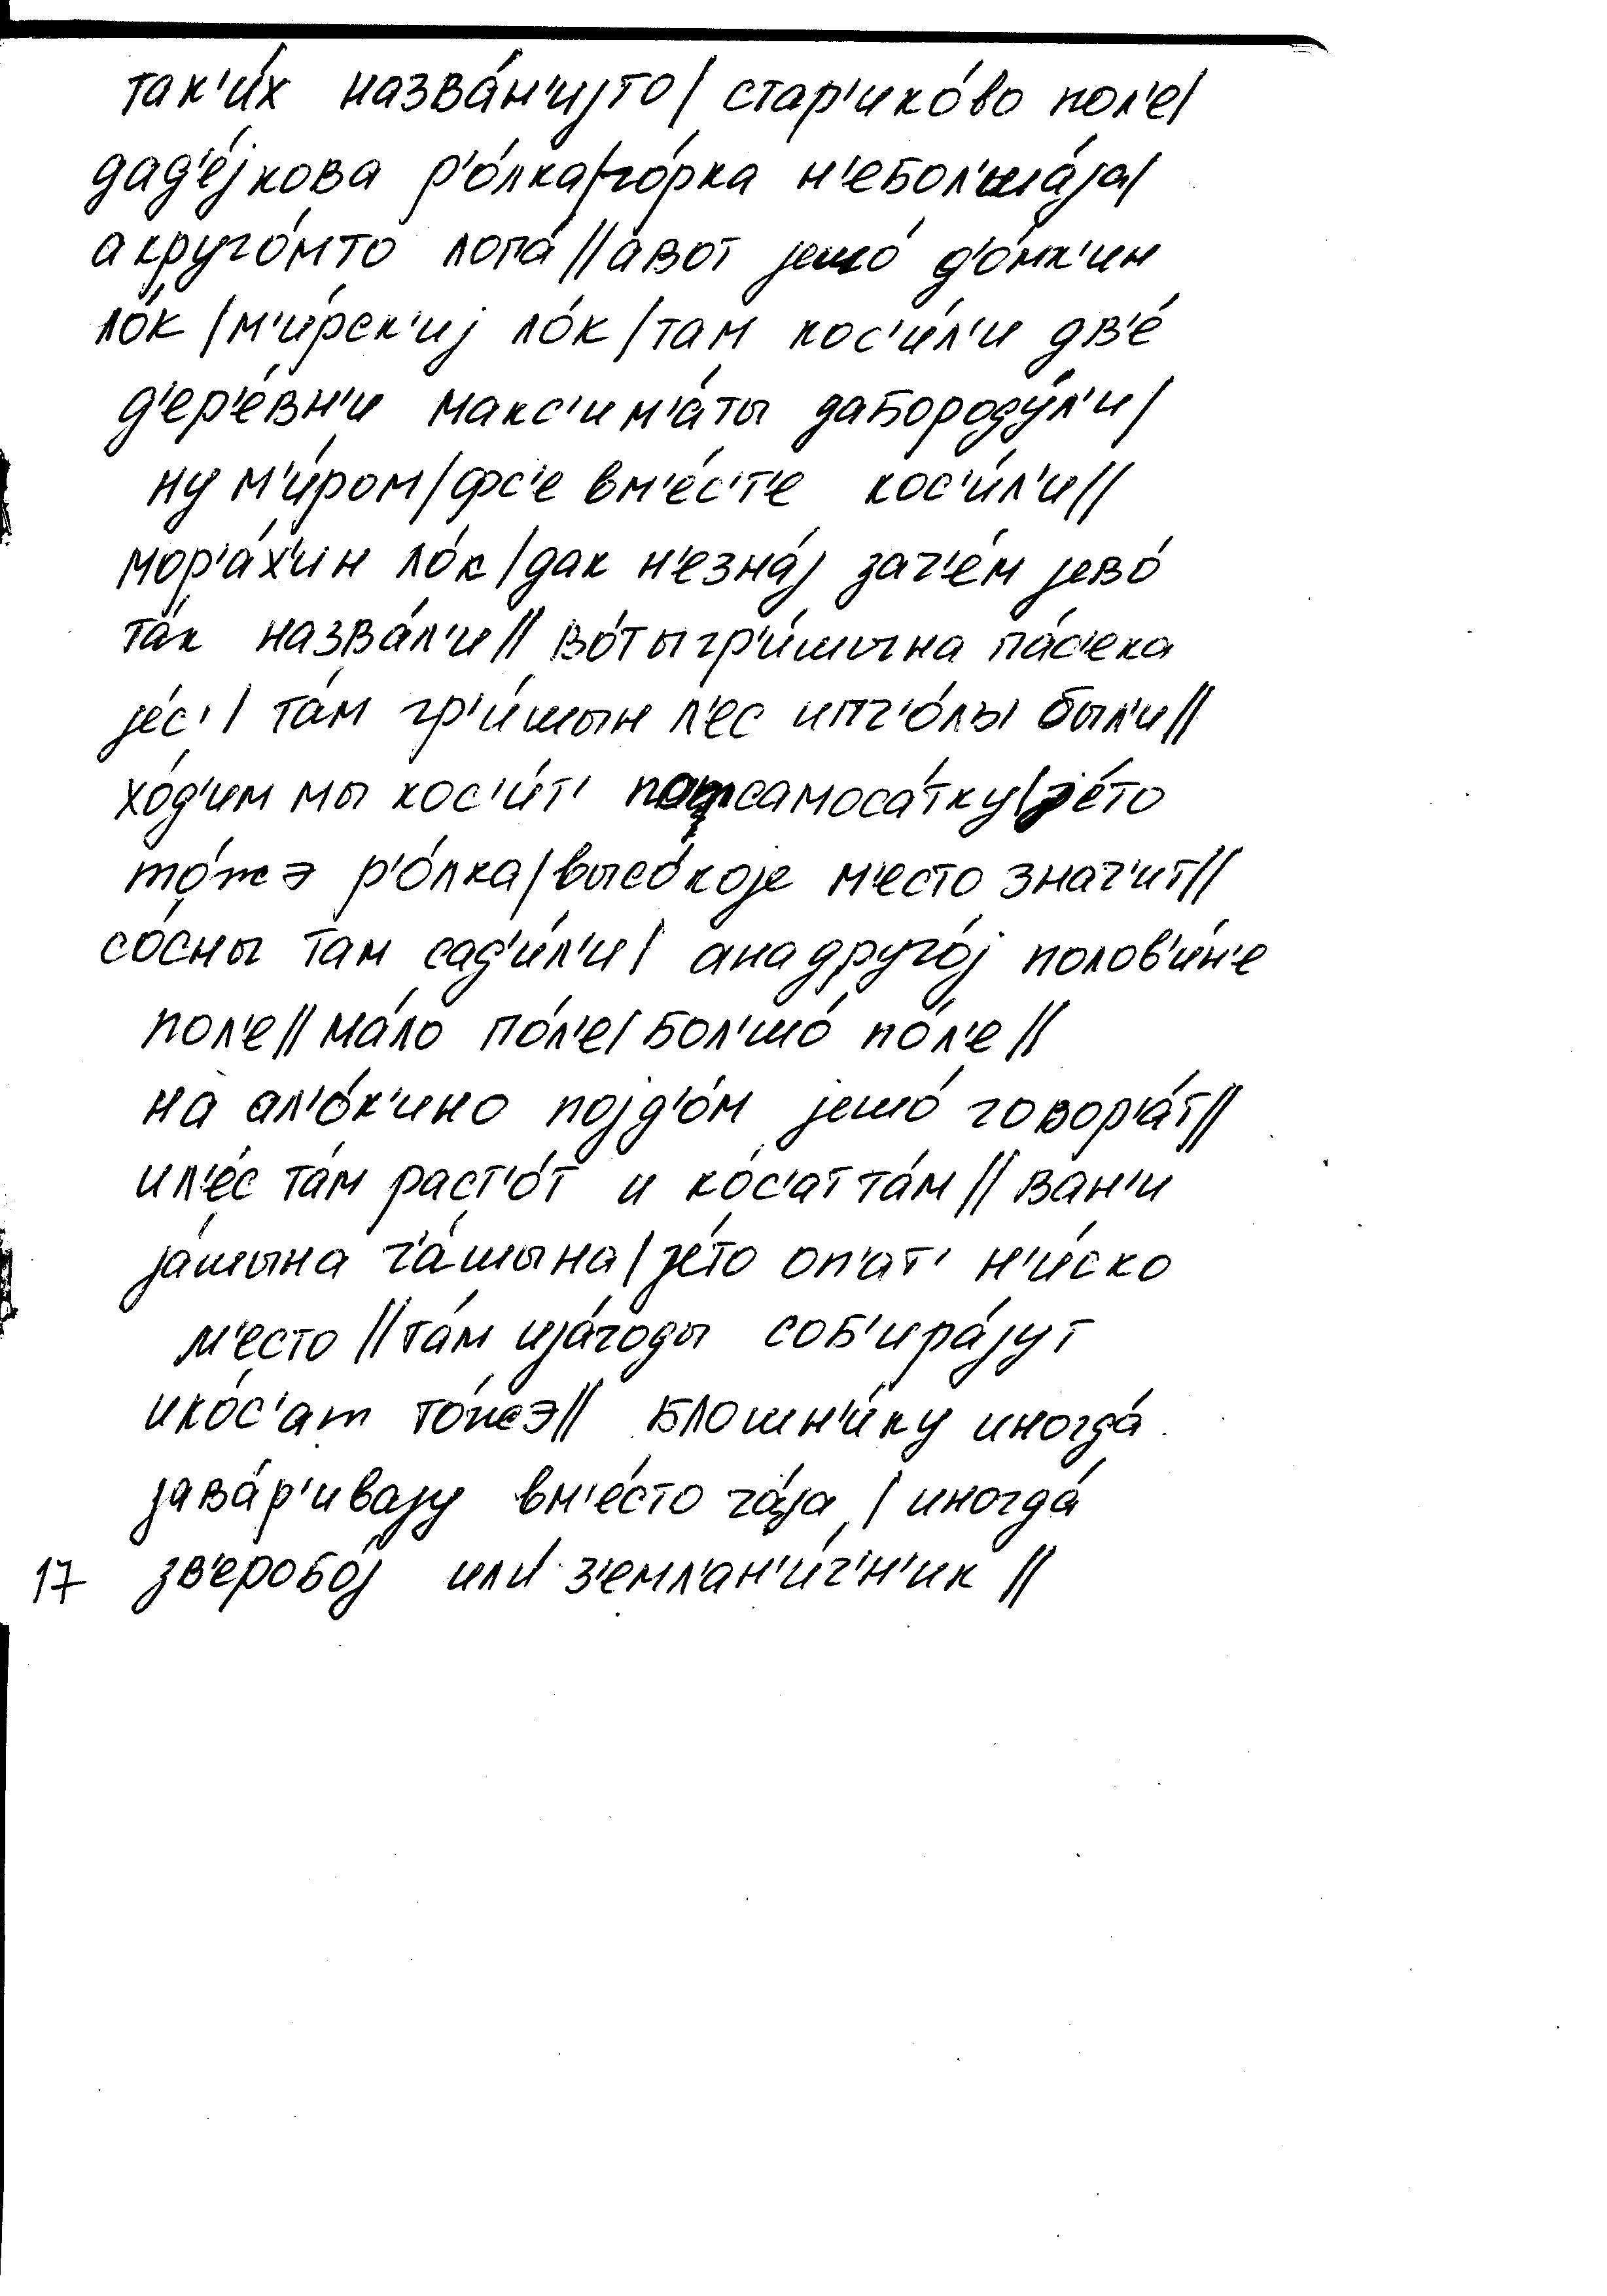 так'и́х назва́н'иjто/ стар'ико́во пол'е/
дад'е́jкова р'о́лка/го́рка н'ебол'ша́jа/
акруго́мто лога́//авот jешо́ д'о́мк'ин
ло́к/м'и́рск'иj ло́к/там кос'и́л'и дв'е́
д'ер'е́вн'и макс'им'а́ты дабороду́л'и/
ну м'и́ром/фс'е вм'е́с'т'е кос'и́л'и//
мор'а́х'ин ло́к/дак н'езна́j зач'е́м jево́
та́к назва́л'и// во́тыгр'и́шына па́с'ека
jе́с'/ та́м гр'и́шын л'ес ипч'о́лы был'и//
хо́д'им мы кос'и́т' самоса́тку/jе́то
то́жэ р'о́лка/высо́коjе м'есто знач'ит//
со́сны там сад'и́л'и/ анадруго́j полов'и́н'е
пол'е//ма́ло по́л'е/бол'шо́ по́л'е//
на ал'о́к'ино поjд'о́м jешо́ говор'а́т//
ил'е́с та́м раст'о́т и ко́с'ат та́м//ван'и
jа́шына ч'а́шына/jе́то оп'ат' н'и́ско
м'есто//та́м иjа́годы соб'ира́jут
ико́с'ат то́жэ// блошн'и́ку иногда́
зава́р'иваjу вм'е́сто ча́jа/иногда́
17 зв'еробо́j или́ з'емл'ан'и́ч'н'ик//